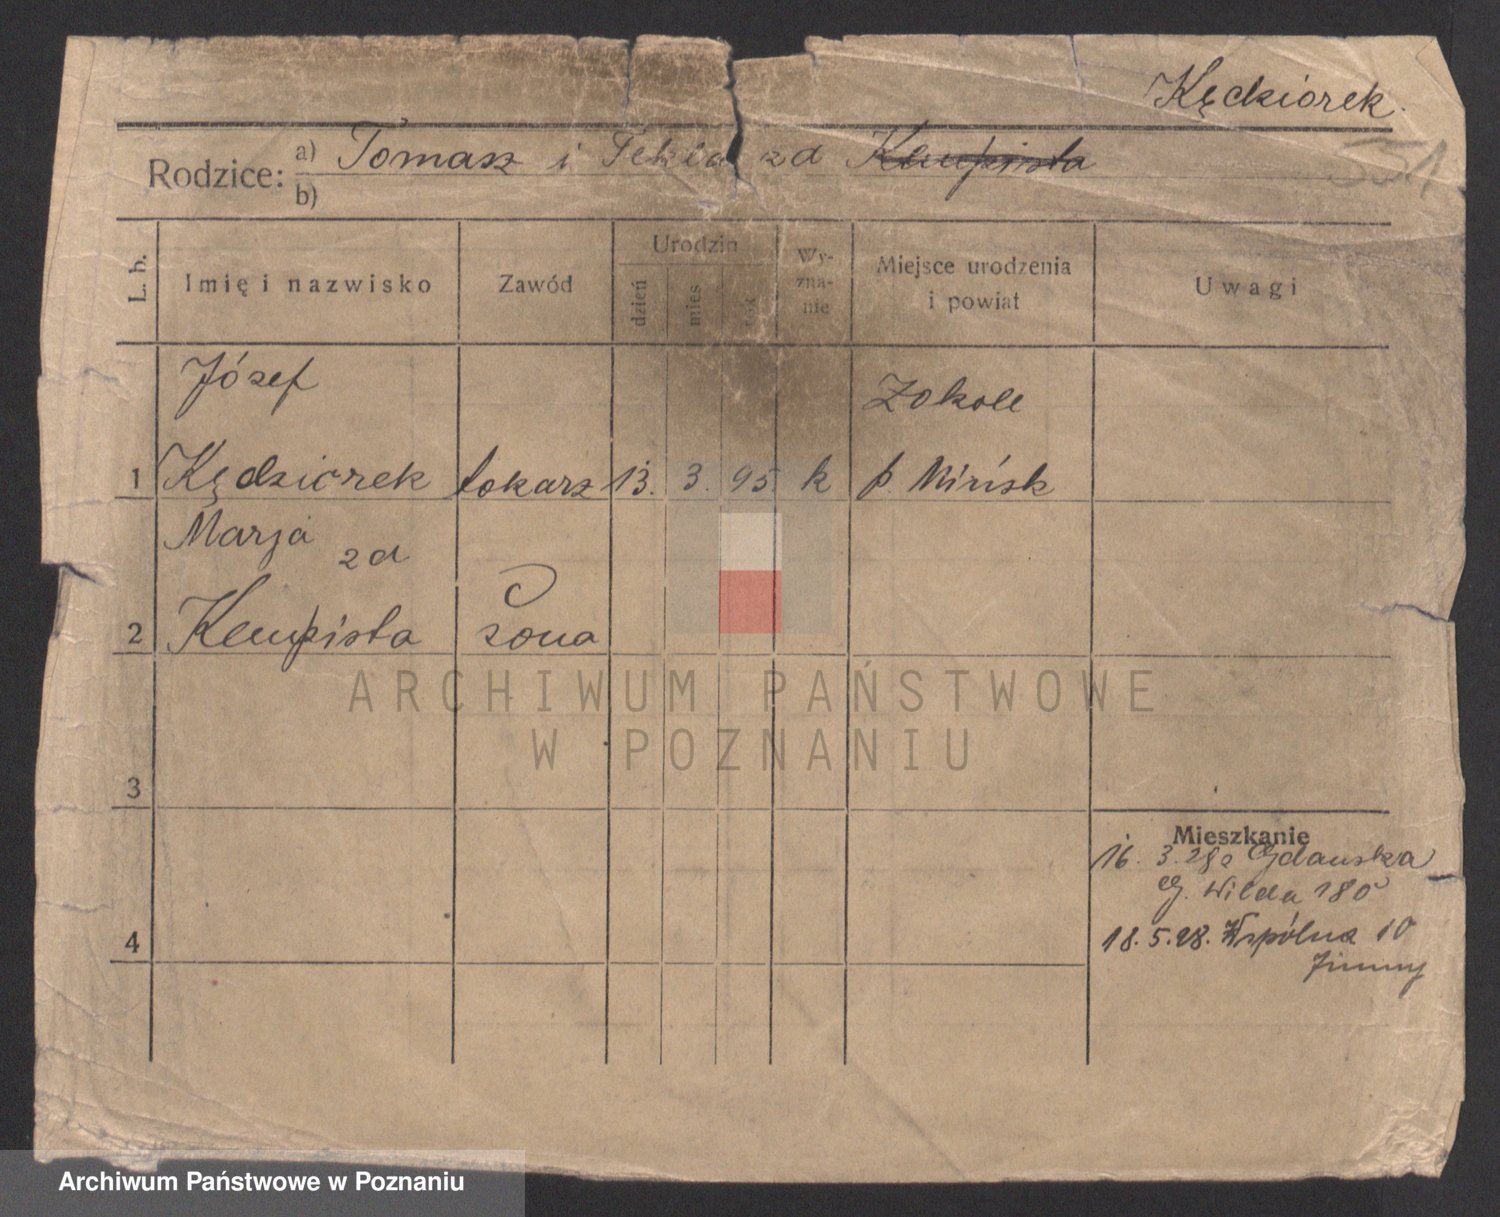 Kędziorek.
551
Rodzice: a) Tomasz i Tekla zd Kempista
b)
L. b.
Imię i nazwisko
Zawód
Urodzin
dzień
mies
rok
Wy-
zna-
nie
Miejsce urodzenia
i powiat
Uwagi
Józef
Zokole
1 Kędziorek tokarz 13. 3. 95 k p. Mińsk
Marja zd
2 Kempista żona
3
Mieszkanie
16. 3. 28 Gdańska
G. Wilda 180
4
18. 5. 28. Wspólna 10
ARCHIWUM PAŃSTWOWE
W POZNANIU
Archiwum Państwowe w Poznaniu